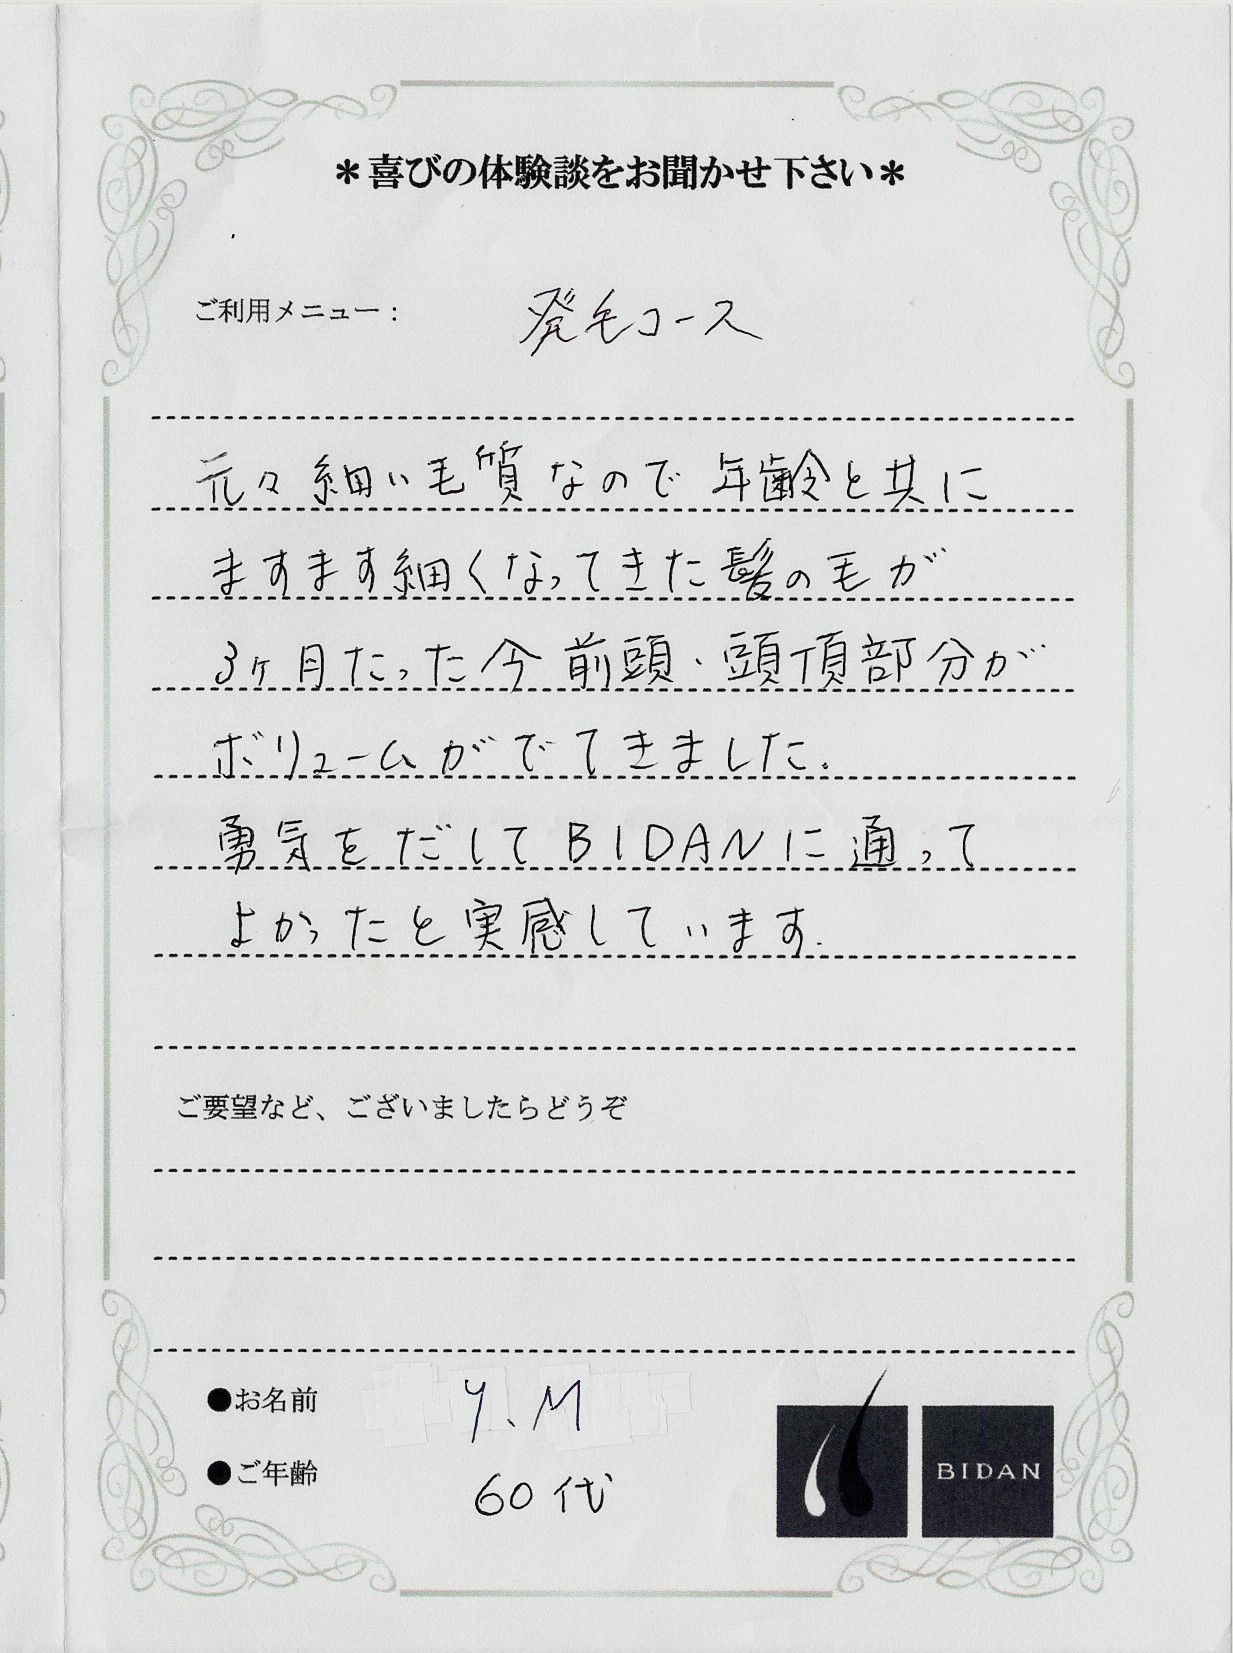 ＊喜びの体験談をお聞かせ下さい＊
ご利用メニュー： 発毛コース
元々細い毛質なので年齢と共に
ますます細くなってきた髪の毛が
3ヶ月たった今前頭・頭頂部分が
ボリュームがでてきました.
勇気をだしてBIDANに通って
よかったと実感しています.
ご要望など、ございましたらどうぞ
●お名前 Y.M
●ご年齢 60代
BIDAN